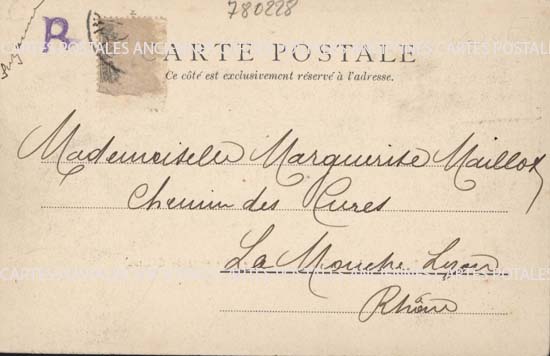 780228
R
CARTE POSTALE
Ce côté est exclusivement réservé à l'adresse.
Mademoiselle Marguerite Maillot
Chemin des Cures
La Mouche Lyon
Rhône
CARTES POSTALES ANCIENNES CARTES POSTALES ANCIENNES CARTES POSTALES
CARTES POSTALES ANCIENNES CARTES POSTALES ANCIENNES CARTES POSTALES